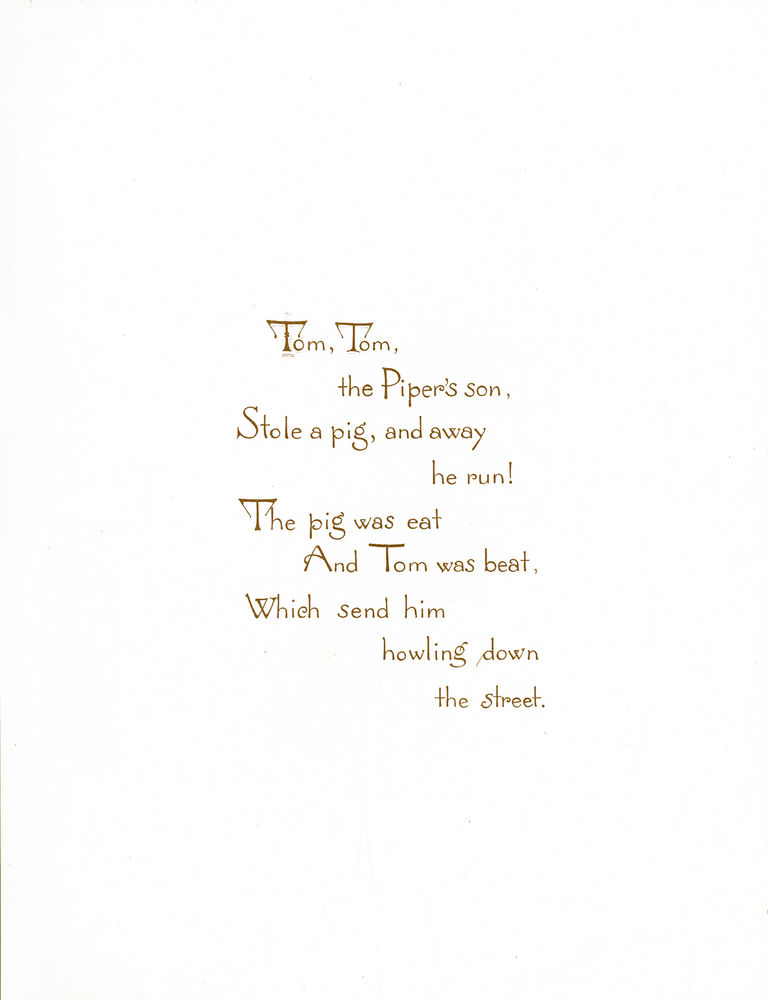 Tom, Tom,
the Piper's son,
Stole a pig, and away
he run!
The pig was eat
And Tom was beat,
Which send him
howling down
the street.